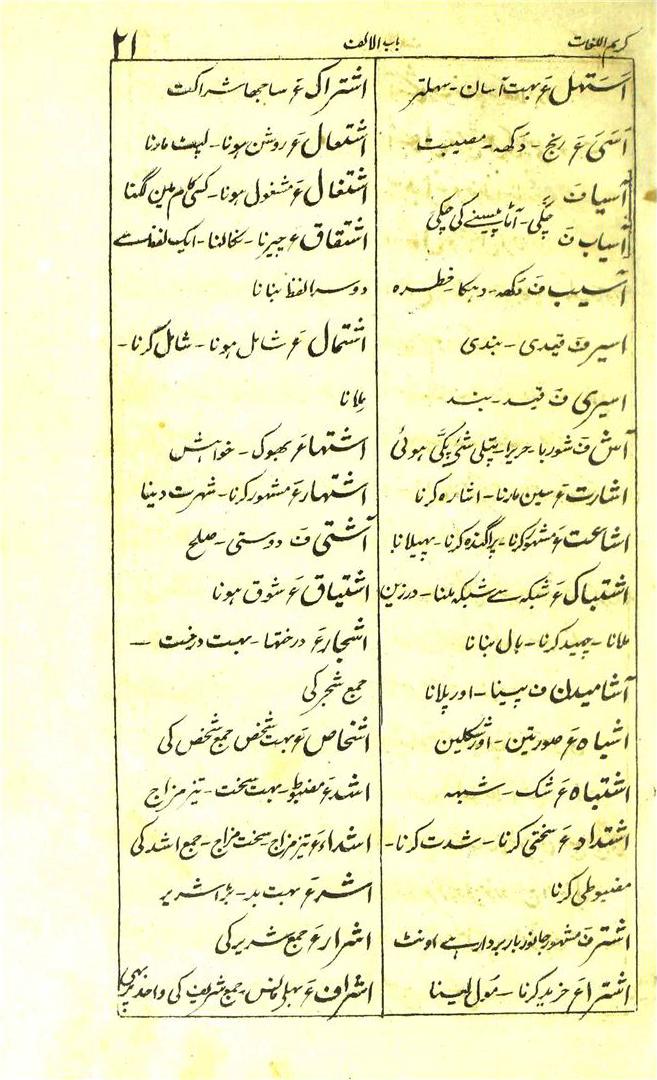 کریم اللغات
باب الالف
۲۱
استہل ع بہت آسان - سہلتر
آسیٰ ع رنج - دکھ - مصیبت
آسیا ف
آسیاب ف چکّی - آٹا پیسنے کی چکی
آسیب ف دکھ - دہکا - خطرہ
اسیر ف قیدی - بندی
اسیری ف قید - بند
آش ف شوربا - حریرا - پتلی شئ پکی ہوئی
اشارت ع سین مارنا - اشارہ کرنا
اشاعت ع مشہور کرنا - پراگندہ کرنا - پھیلانا
اشتباک ع شبکہ سے شبکہ ملنا - درزین
ملانا - چھید کرنا - بال بنانا
آشامیدن ف پینا - اور پلانا
اشباہ ع صورتین - اور شکلین
اشتباہ ع شک - شبہہ
اشتداد ع سختی کرنا - شدت کرنا -
مضبوطی کرنا
اشتر ف مشہور جانور باربردار ہے اونٹ
اشترا ع خرید کرنا - مول لینا
اشتراک ع ساجھا شراکت
اشتعال ع روشن ہونا - لپٹ مارنا
اشتغال ع مشغول ہونا - کسی کام مین لگنا
اشتقاق ع چیرنا - نکالنا - ایک لفظ سے
دوسرا لفظ بنانا
اشتمال ع شامل ہونا - شامل کرنا -
ملانا
اشتہا ع بھوک - خواہش
اشتہار ع مشہور کرنا - شہرت دینا
آشتی ف دوستی - صلح
اشتیاق ع شوق ہونا
اشجار ع درختہا - بہت درخت -
جمع شجر کی
اشخاص ع بہت شخص جمع شخص کی
اشد ع مضبوط - بہت سخت - تیز مزاج
اشداء ع تیز مزاج سخت مزاج - جمع اشد کی
اشر ع بہت بد - بڑا شریر
اشرار ع جمع شریر کی
اشراف ع بھلے مانس - جمع شریف کی واحد پر بھی